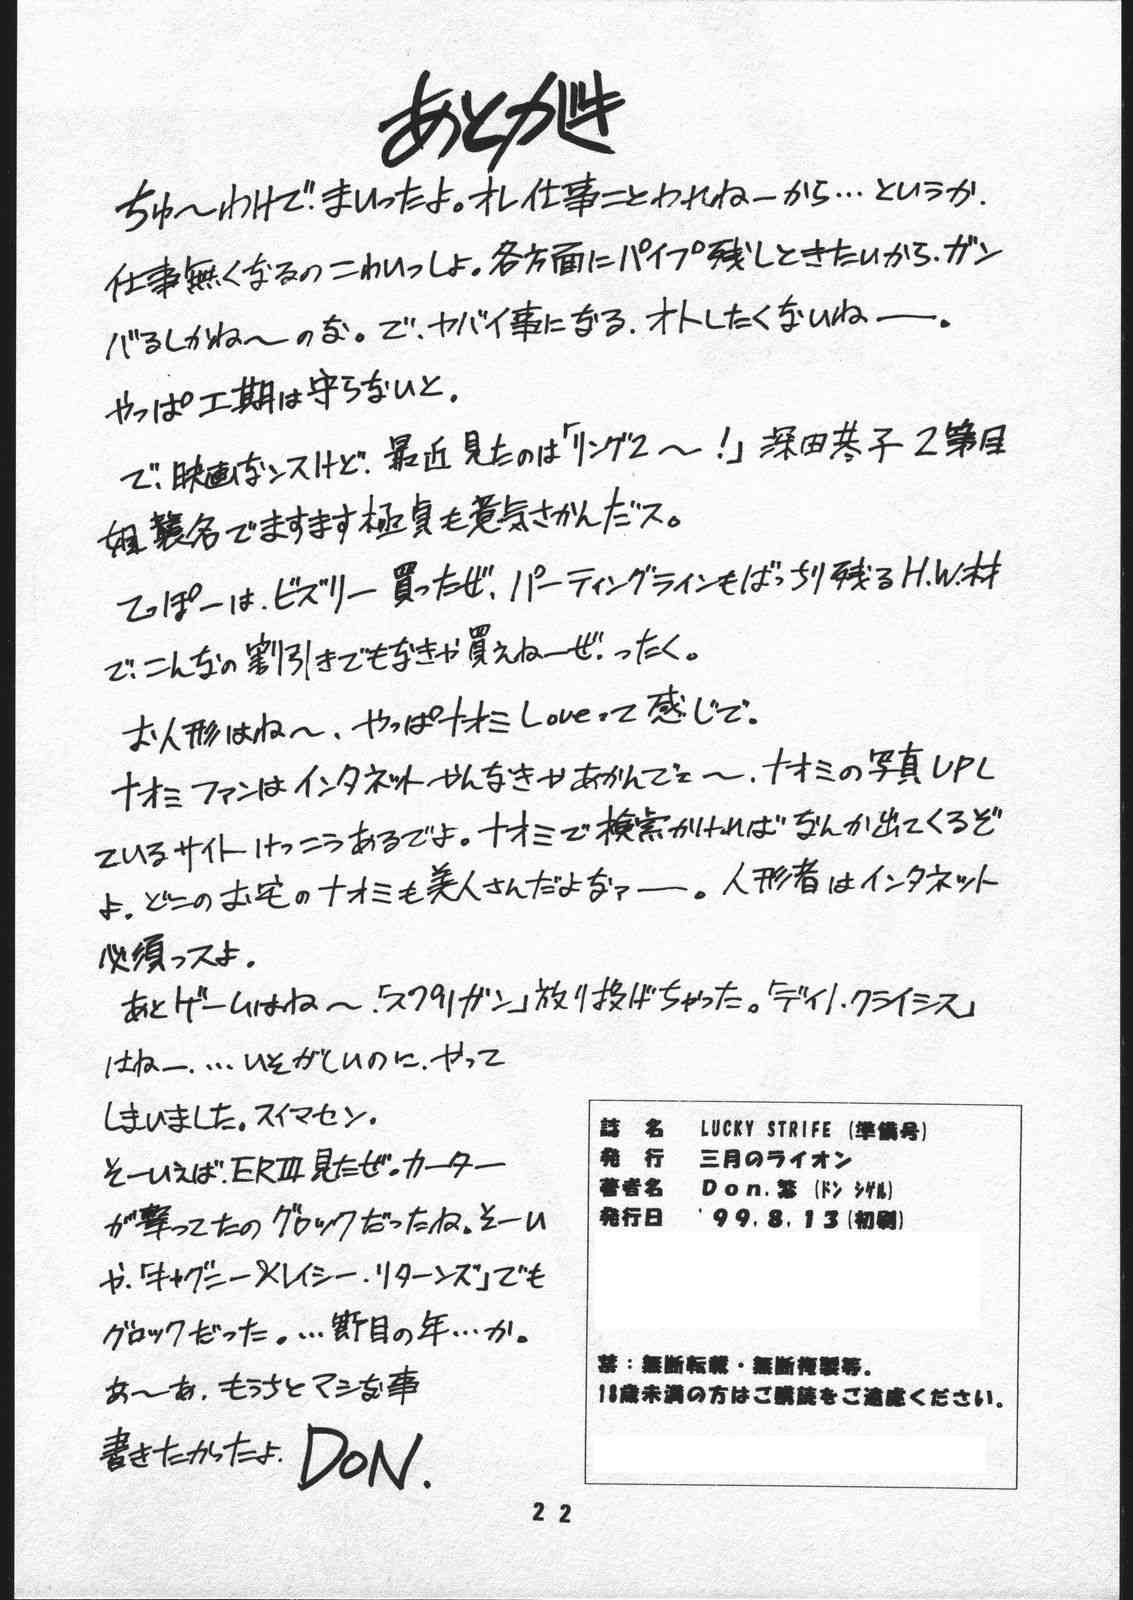 あとがき
ちゅ〜わけで、まいったよ。オレ仕事ことわれねーから…というか、
仕事無くなるのこわいっしょ。各方面にパイプ残しときたいから、ガン
バるしかね〜のな。で、ヤバイ事になる、オトしたくないねー。
やっぱ工期は守らないと。
で、映画なンスけど、最近見たのは「リング2〜!」深田恭子2第目
姐襲名でますます極貞も意気さかんだス。
てっぽーは、ビズリー買ったぜ、パーティングラインもばっちり残るH.W.材
で、こんなの割引きでもなきゃ買えねーぜ、ったく。
お人形はね〜、やっぱナオミLoveって感じで。
ナオミファンはインタネットやんなきゃあかんでェ〜、ナオミの写真UPし
ているサイトけっこうあるでよ。ナオミで検索かければなんか出てくるぞ
よ、どこのお宅のナオミも美人さんだよなァー。人形者はインタネット
必須っスよ。
あとゲームはね〜、「スプリガン」放り投げちゃった。「ディノ・クライシス」
はねー、…いそがしいのに、やって
しまいました。スイマセン。
そーいえば、ERⅢ見たぜ。カーター
が撃ってたのグロックだったね。そーい
や、「キャグニー&レイシー・リターンズ」でも
グロックだった。…断目の年…か。
あ〜あ、もうちとマシな事
書きたかったよ、DON.
誌 名 LUCKY STRIFE (準備号)
発 行 三月のライオン
著者名 Don.繁 (ドン シゲル)
発行日 '99.8.13(初刷)
禁:無断転載・無断複製等.
18歳未満の方はご購読をご遠慮ください.
22